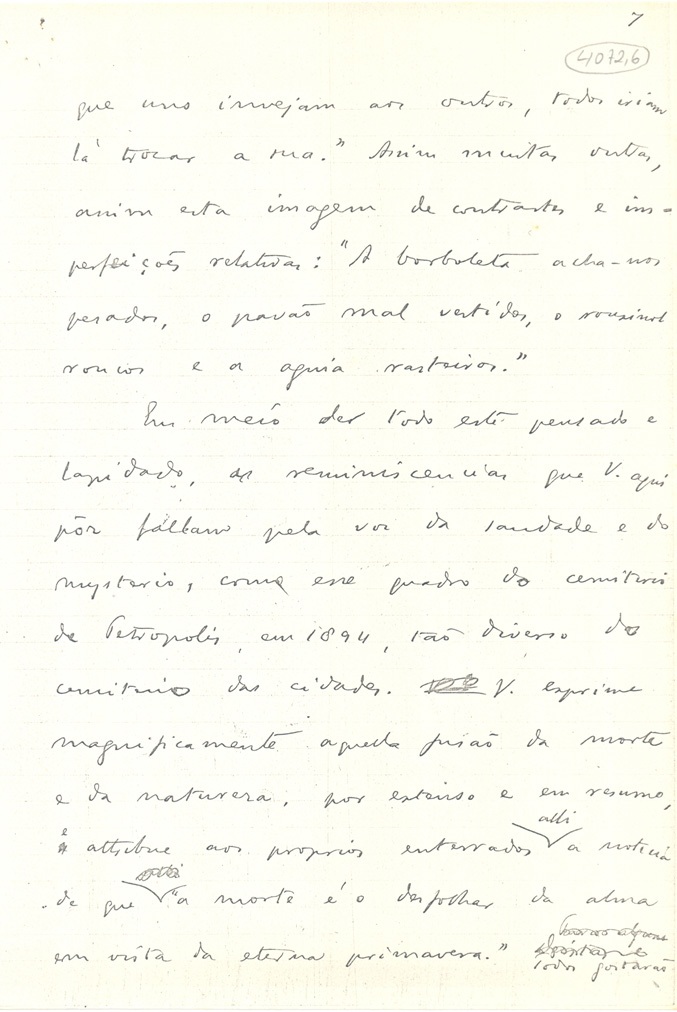 7
4072,6
que uns invejam aos outros, todos iriam
lá trocar a sua." Assim muitas outras,
assim esta imagem de contrastes e im-
perfeições relativas: "A borboleta acha-nos
pesados, o pavão mal vestidos, o rouxinol
roucos e a aguia rasteiros."
Em meio de todo este pensado e
lapidado, as reminiscencias que V. aqui
pôz fallam pela voz da saudade e do
mysterio, como esse quadro do cemiterio
de Petropolis, em 1894, tão diverso do
cemiterio das cidades. V. exprime
magnificamente aquella fusão da morte
e da natureza, por extenso e em resumo,
e attribue aos proprios enterrados alli a noticia
de que "a morte é o desfolhar da alma
em vista da eterna primavera."
todos gostarão